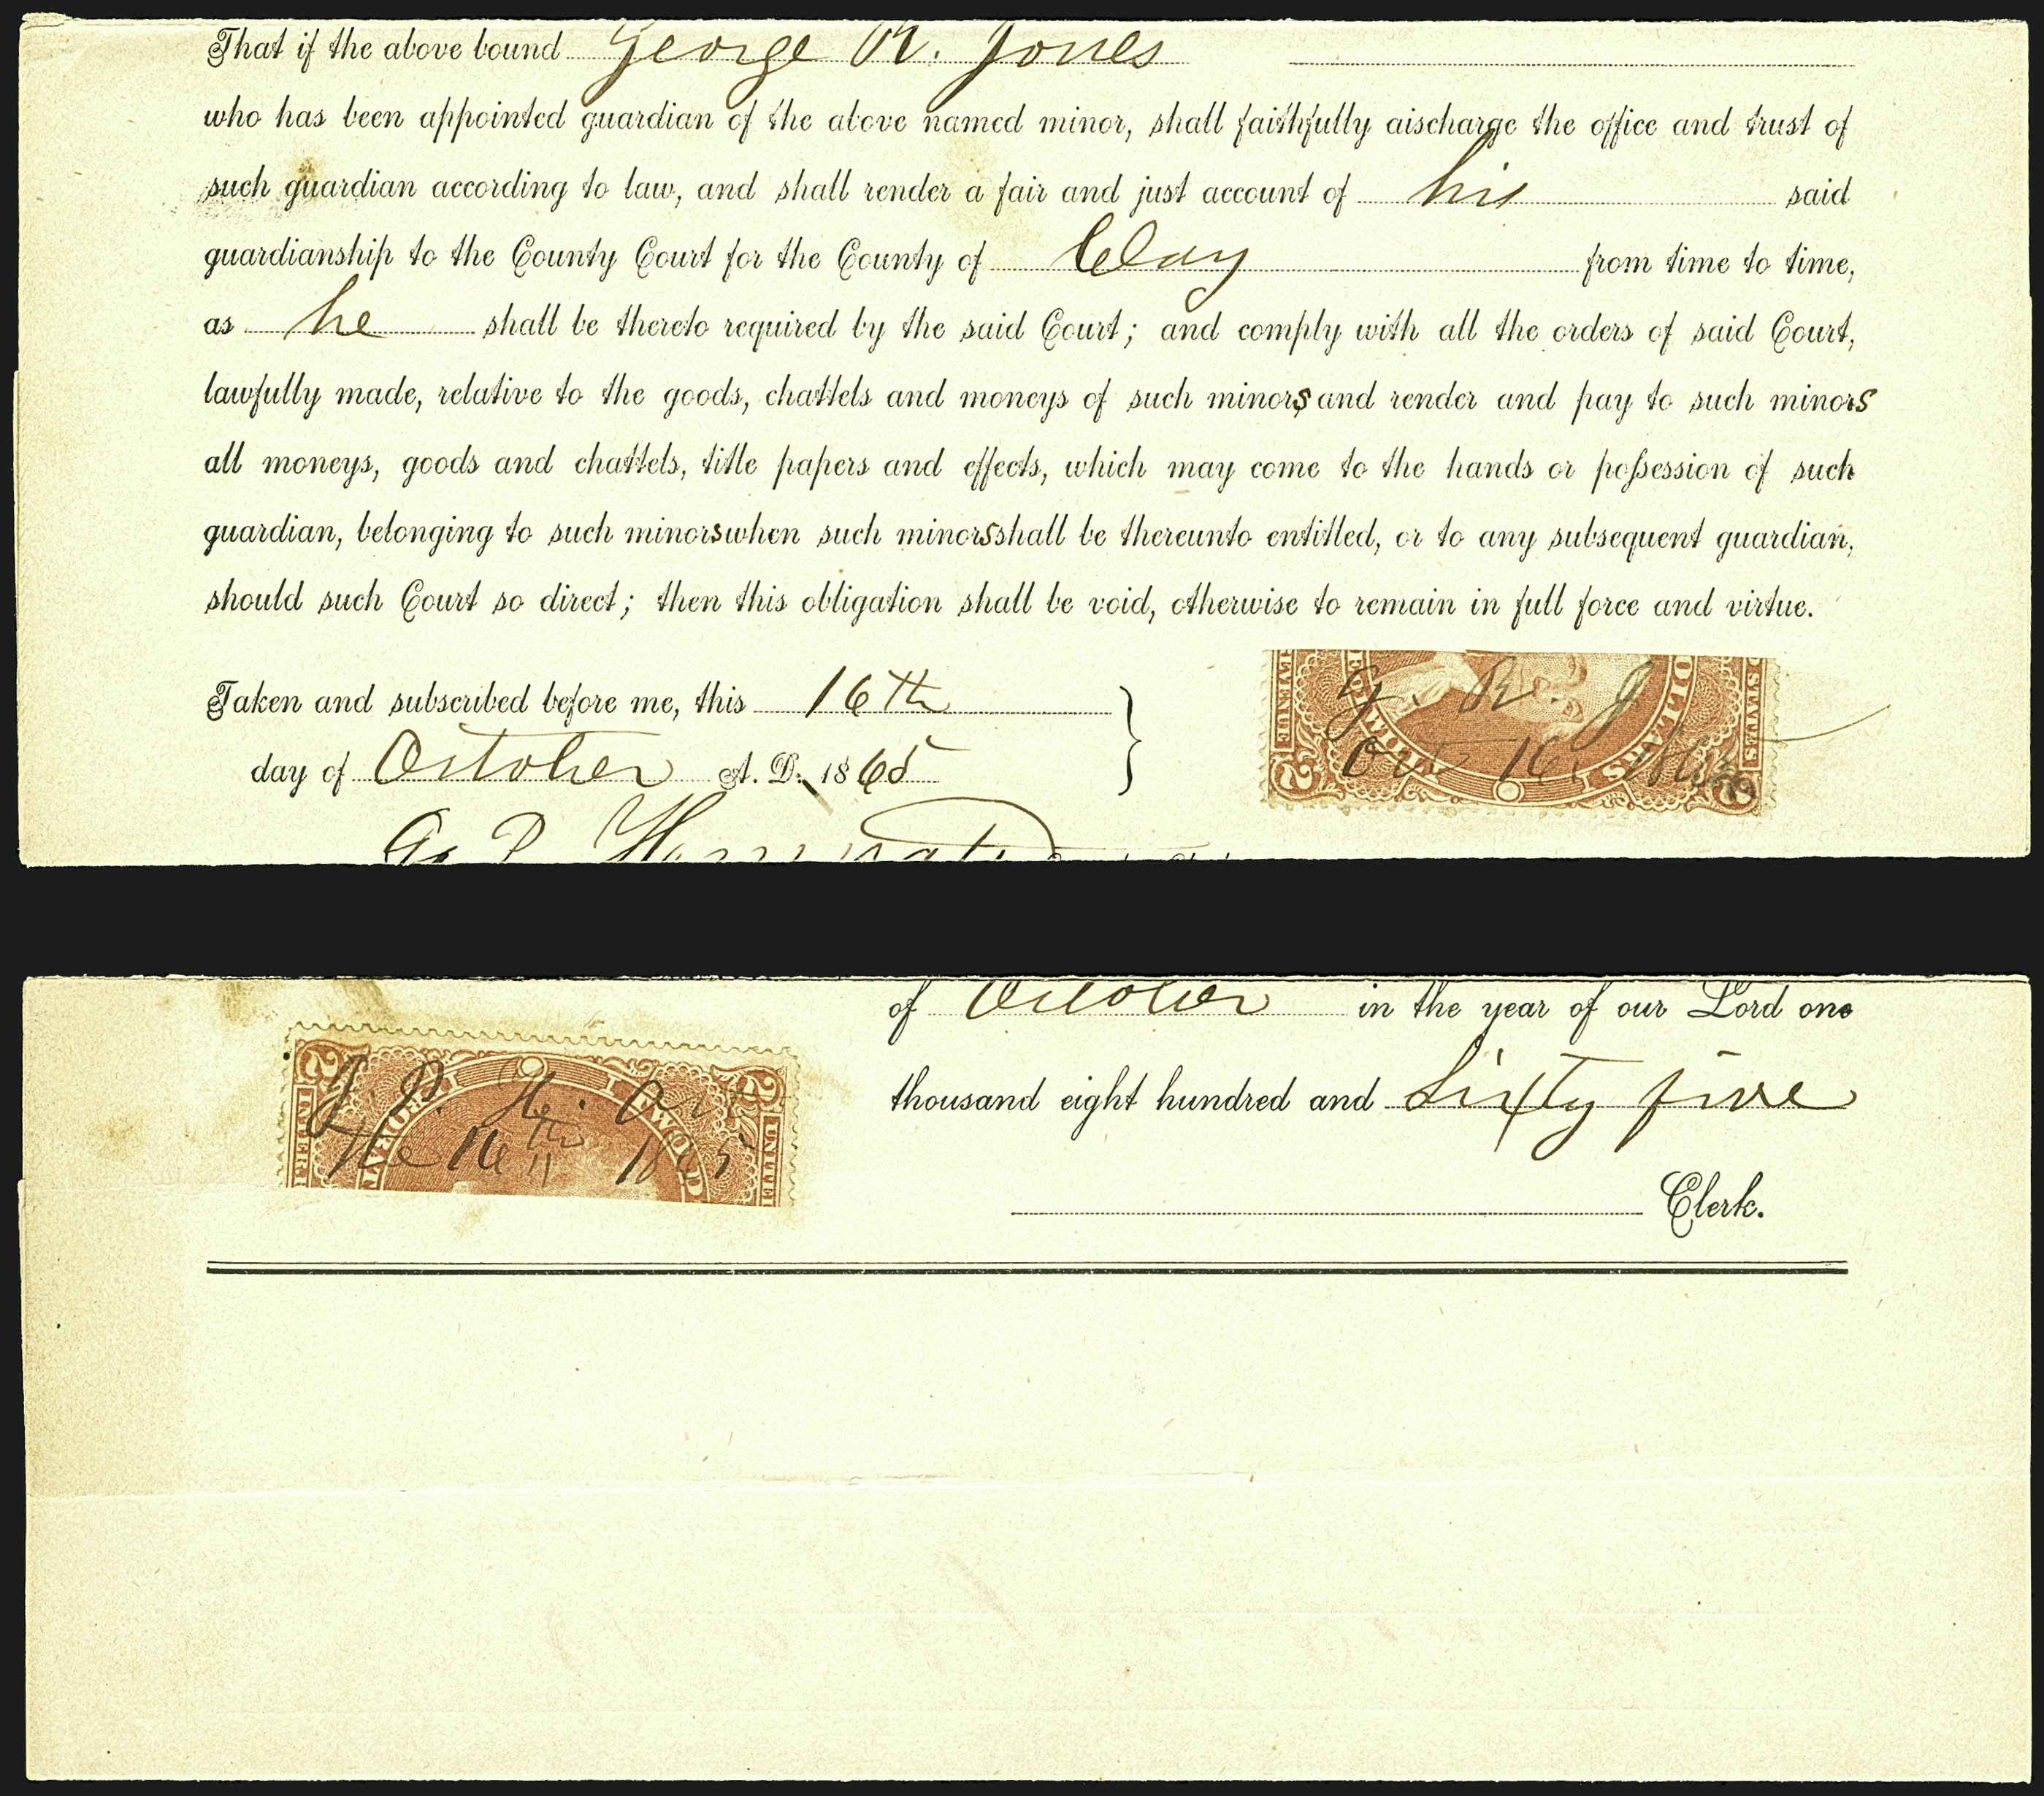 That if the above bound George R. Jones
who has been appointed guardian of the above named minor, shall faithfully aischarge the office and trust of
such guardian according to law, and shall render a fair and just account of his said
guardianship to the County Court for the County of Clay from time to time,
as he shall be thereto required by the said Court; and comply with all the orders of said Court,
lawfully made, relative to the goods, chattels and moneys of such minors and render and pay to such minors
all moneys, goods and chattels, title papers and effects, which may come to the hands or possession of such
guardian, belonging to such minors when such minors shall be thereunto entitled, or to any subsequent guardian,
should such Court so direct; then this obligation shall be void, otherwise to remain in full force and virtue.
Taken and subscribed before me, this 16th
day of October A. D. 1865
REVENUE
DOLLARS
STATES
2
2
G. R. J
Oct 16th
of October in the year of our Lord one
thousand eight hundred and Sixty five
Clerk.
2
2
INTER.
PROBATE
UNITED
J. P. H. Oct
the 16th 1865